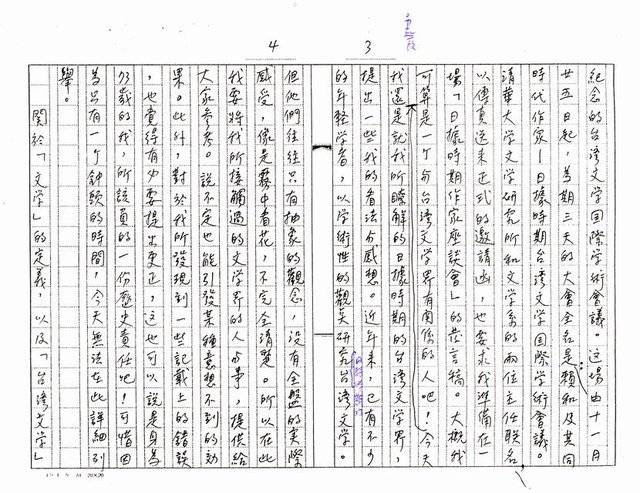 3
紀念的台湾文学国際学術會議。这場由十一月
廿五日起，為期三天的大會全名是賴和及其同
時代作家—日據時期台湾文学国際学術會議。
清華大学文学研究所和文学系的兩位主任联名，
以傳真送來正式的邀請函，也要求我準備在一
場「日據時期作家座談會」的發言稿。大概我
可算是一个与台湾文学界有関係的人吧！今天
我還是就我所瞭解的日據時期的台湾文学界，
提出一些我的看法与感想。近年来，已有不少
的年輕学者，以学術性的觀奌研究台湾文学。
4
但他們往往只有抽象的觀念，沒有全盤的実際
感受，像是霧中看花，不完全清楚。所以在此
我要將我所接觸過的文学界的人与事，提供給
大家参考。說不定也能引發某種意想不到的効
果。此外，對於我所發現到一些記載上的錯誤
，也覺得有必要提出更正，这也可以說是身為
73歲的我，所該負的一份歷史責任吧！可惜因
為只有一个鐘頭的時間，今天無法在此詳細列
舉。
関於「文学」的定義，以及「台湾文学」